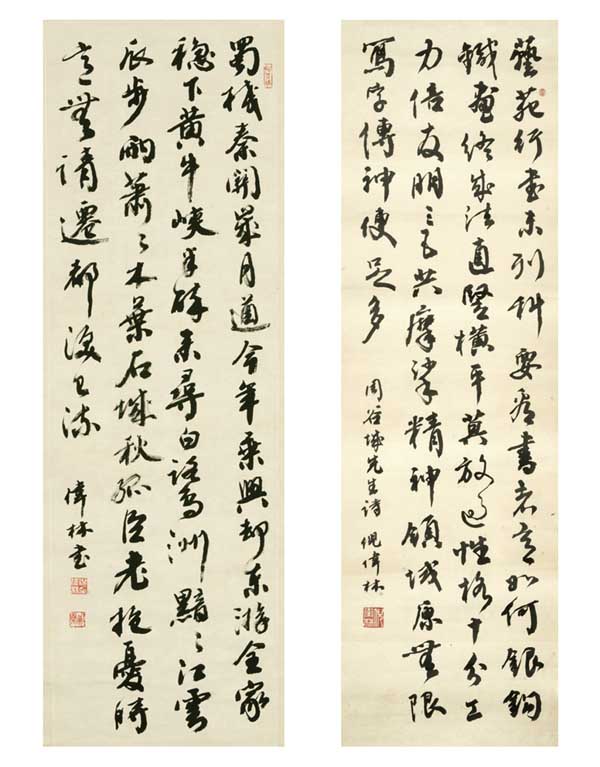 藝苑行書未列科要看書者意如何銀鉤
鐵畫終成法直豎橫平莫放過性格十分工
力倍友朋三五共摩挲精神領域原無限
寫字傳神便足多
周谷城先生詩 倪偉林
蜀棧秦關歲月遒今年乘興却東游全家
穩下黃牛峽半醉來尋白鷺洲黯〻江雲
瓜步雨蕭〻木葉石城秋孤臣老抱憂時
意無請遷都淚已流
偉林書